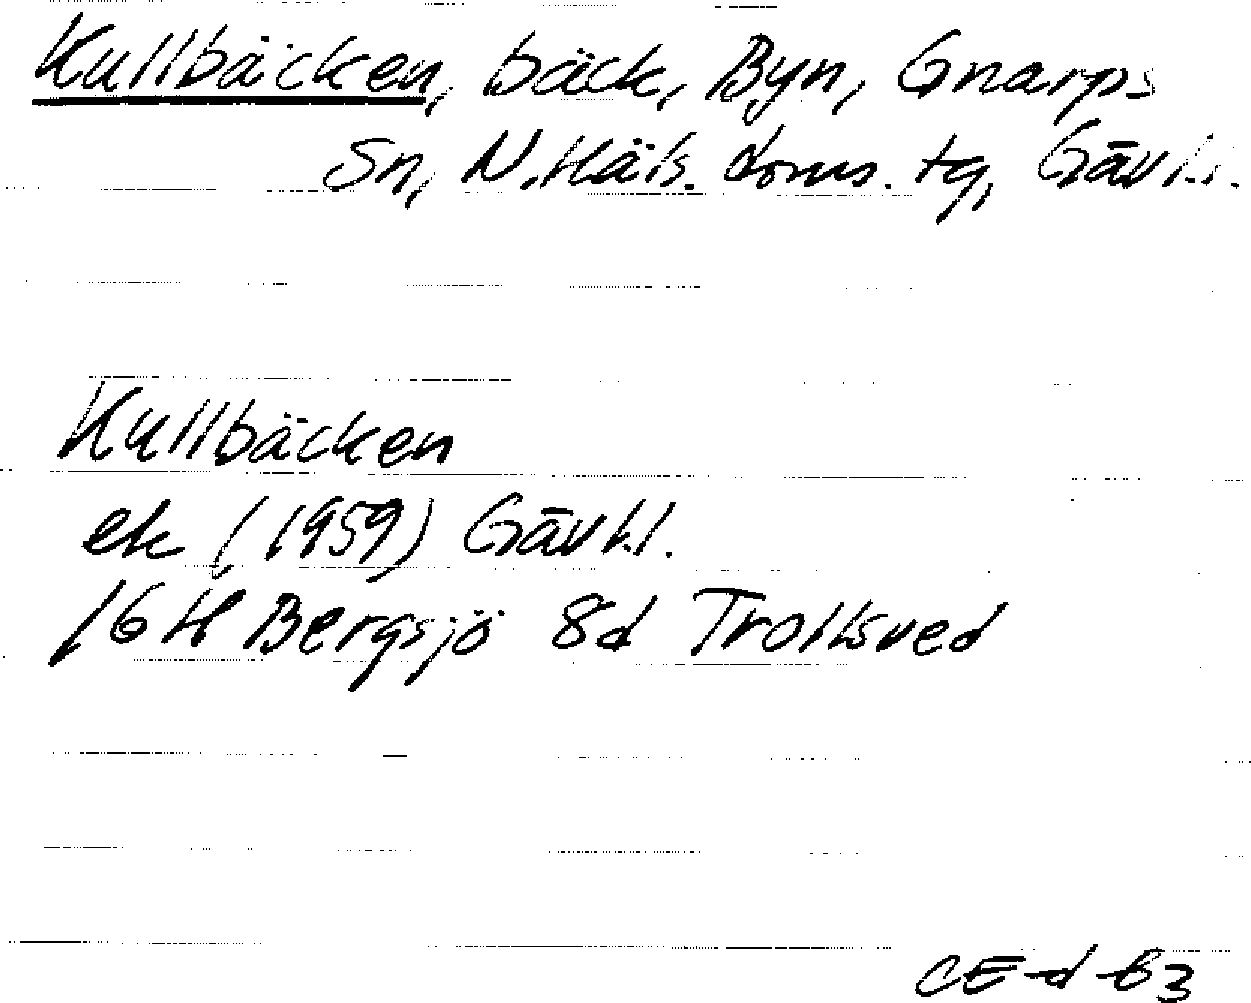 Kullbäcken, bäck, Byn, Gnarps
Sn, N. Häls. doms. tg, Gävl.
Kullbäcken
ek (1959) Gävl.
16 H Bergsjö 8d Trollsved